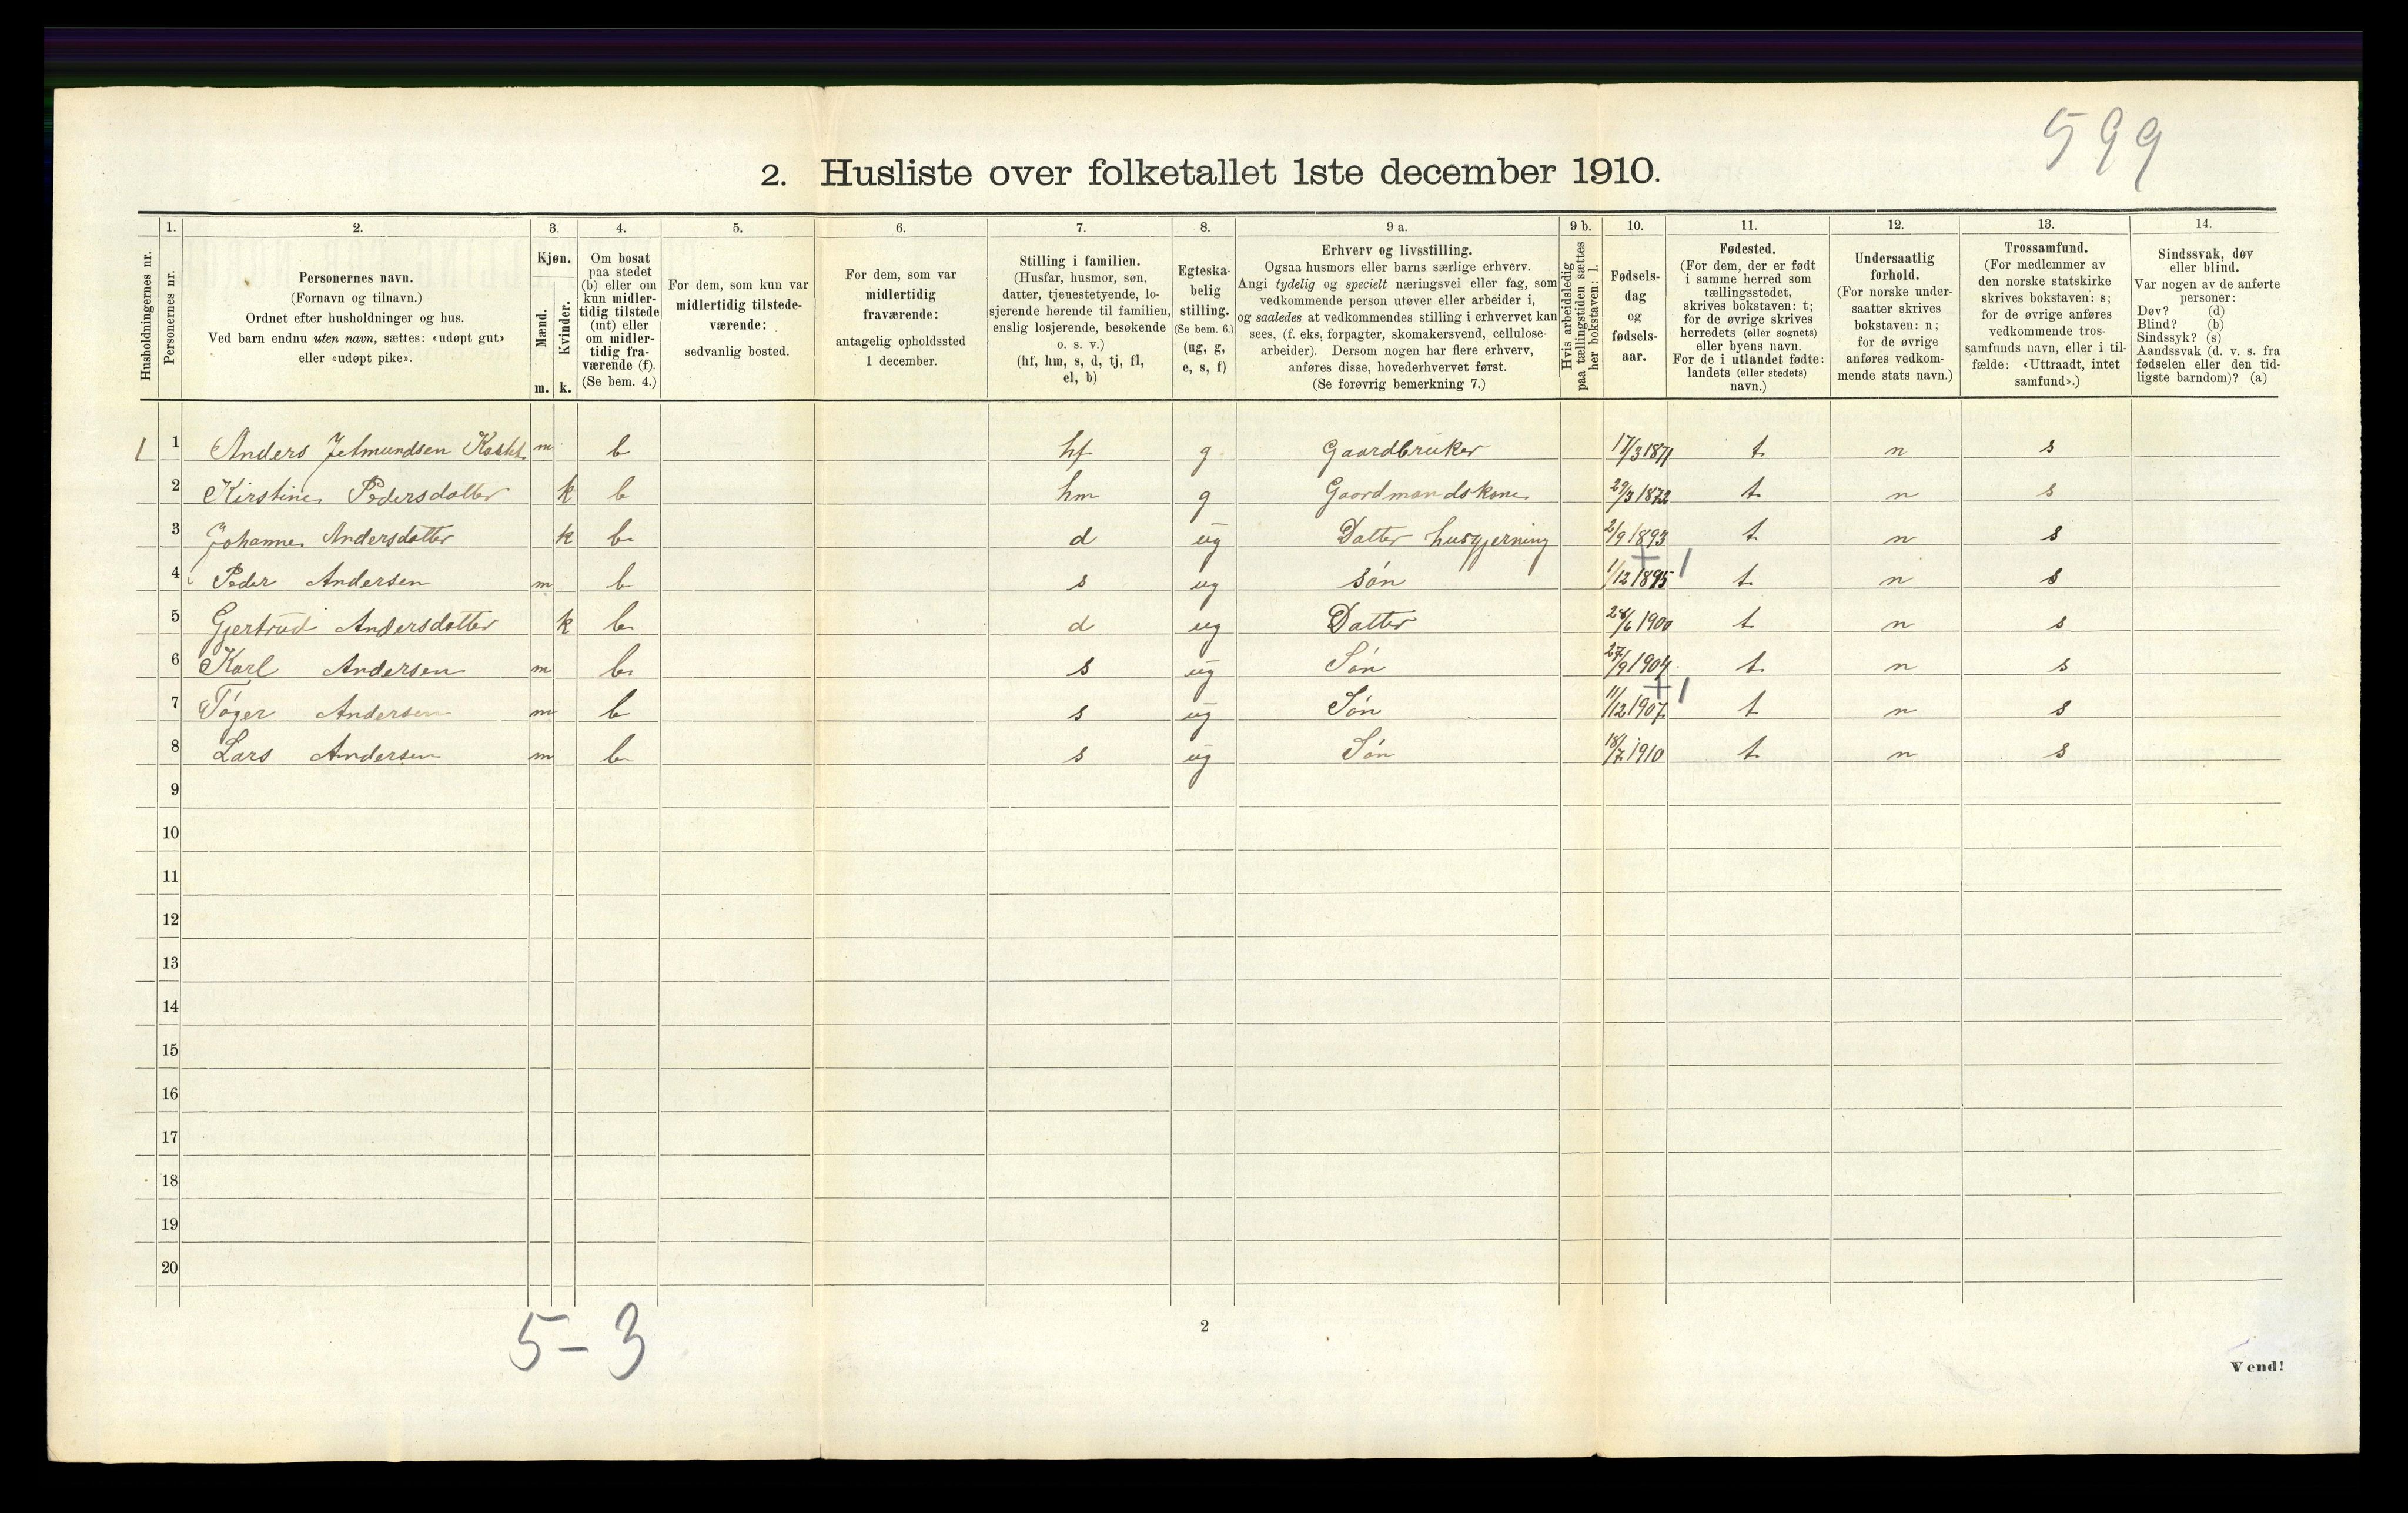 599
2. Husliste over folketallet 1ste december 1910.
Husholdningernes nr.
1.
Personernes nr.
2.
Personernes navn.
(Fornavn og tilnavn.)
Ordnet efter husholdninger og hus.
Ved barn endnu uten navn, sættes: «udøpt gut»
eller «udøpt pike».
3.
Kjøn.
Mænd.
m.
Kvinder.
k.
4.
Om bosat
paa stedet
(b) eller om
kun midler-
tidig tilstede
(mt) eller
om midler-
tidig fra-
værende (f).
(Se bem. 4.)
5.
For dem, som kun var
midlertidig tilstede-
værende:
sedvanlig bosted.
6.
For dem, som var
midlertidig
fraværende:
antagelig opholdssted
1 december.
7.
Stilling i familien.
(Husfar, husmor, søn,
datter, tjenestetyende, lo-
sjerende hørende til familien,
enslig losjerende, besøkende
o. s. v.)
(hf, hm, s, d, tj, fl,
el, b)
8.
Egteska-
belig
stilling.
(Se bem. 6.)
(ug, g,
e, s, f)
9 a.
Erhverv og livsstilling.
Ogsaa husmors eller barns særlige erhverv.
Angi tydelig og specielt næringsvei eller fag, som
vedkommende person utøver eller arbeider i,
og saaledes at vedkommendes stilling i erhvervet kan
sees, (f. eks. forpagter, skomakersvend, cellulose-
arbeider). Dersom nogen har flere erhverv,
anføres disse, hovederhvervet først.
(Se forøvrig bemerkning 7.)
9 b.
Hvis arbeidsledig
paa tællingstiden sættes
her bokstaven: l.
10.
Fødsels-
dag
og
fødsels-
aar.
11.
Fødested.
(For dem, der er født
i samme herred som
tællingsstedet,
skrives bokstaven: t;
for de øvrige skrives
herredets (eller sognets)
eller byens navn.
For de i utlandet fødte:
landets (eller stedets)
navn.)
12.
Undersaatlig
forhold.
(For norske under-
saatter skrives
bokstaven: n;
for de øvrige
anføres vedkom-
mende stats navn.)
13.
Trossamfund.
(For medlemmer av
den norske statskirke
skrives bokstaven: s;
for de øvrige anføres
vedkommende tros-
samfunds navn, eller i til-
fælde: «Uttraadt, intet
samfund».)
14.
Sindssvak, døv
eller blind.
Var nogen av de anførte
personer:
Døv? (d)
Blind? (b)
Sindssyk? (s)
Aandssvak (d. v. s. fra
fødselen eller den tid-
ligste barndom)? (a)
1 1 Anders Jetmundsen m b hf g Gaardbruker 17/3 1871 t n s
2 Kirstine Pedersdatter k b hm g Gaardmandskone 29/3 1872 t n s
3 Johanne Andersdatter k b d ug Datter husgjerning 2/9 1893 t n s
4 Peder Andersen m b s ug søn 1/12 1895 + 1 t n s
5 Gjertrud Andersdatter k b d ug Datter 28/6 1900 t n s
6 Karl Andersen m b s ug Søn 27/9 1904 t n s
7 Tøger Andersen m b s ug Søn 11/12 1907 + 1 t n s
8 Lars Andersen m b s ug Søn 18/7 1910 t n s
9
10
11
12
13
14
15
16
17
18
19
20
5-3
2
Vend!